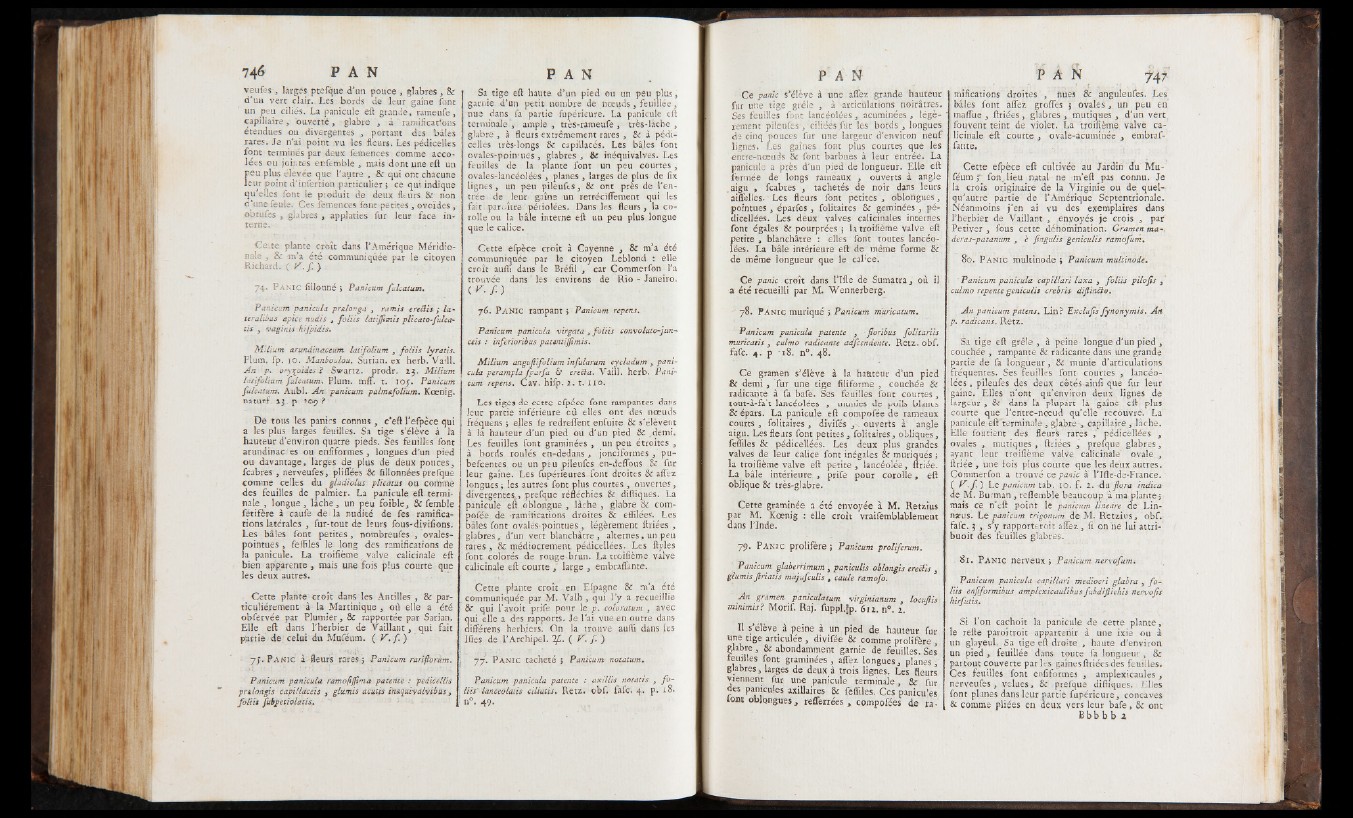 746 P A N
veuses, larges presque d'un pouce, glabres, &
d'un vert clair. Les bords de leur gaîne sont
un peu ciliés. La panicule est grande, rameuse,
capillaire, ouverte, glabre, à ramifications
étendues ou divergentes, portant des bâles
rares. Je n'ai point vu les fleurs. Les pédicelles
sont terminés par deux semences comme acco-
lées ou jointes ensemble, mais dont une est un
peu plus élevée que l'autre, & qui ont chacune
leur point d'insertion particulier; ce qui indique
qu'elles sont le produit de deux fleurs & non
d'une seule. Ces semences sont petites, ovoïdes,
obtuses, glabres, applaties sur leur face in-
terne.
Cette plante croît dans l'Amérique Méridio-
nale, & m'a été communiquée par le citoyen
Richard. ( V. s. )
74. PANIC sillonné; Panicum sulcatum.
Panicum panicula prælonga, ramis erectis; la-
teralibus apice nudis, foliis latissimis plicato-sulca-
tis, vaginis hispidis.
Milium arundinaceum latifolium, foliis lyratis.
Plum. sp. 10. Manboulou, Surian. ex herb. Vaill.
An p. oryzoides? Swartz. prodr. 23. Milium
latifolium sulcatum. Plum. mss. t. 105. Panicum
sulcatum. Aubl. An panicum palmæfolium. Kœnig.
naturf. 23. p. 209?
De tous les panics connus, c'est l'espèce qui
a les plus larges feuilles. Sa tige s'élève à la
hauteur d'environ quatre pieds. Ses feuilles sont
arundinacées ou ensiformes, longues d'un pied
ou davantage, larges de plus de deux pouces,
scabres, nerveuses, plissées & sillonnées presque
comme celles du gladiolus plicatus ou comme
des feuilles de palmier. La panicule est termi-
nale, longue, lâche, un peu foible, & semble
sétifère à cause de la nudité de ses ramifica-
tions latérales, sur-tout de leurs sous-divisions.
Les bâles sont petites, nombreuses, ovales-
pointues, sessiles le long des ramifications de
la panicule. La troisième valve calicinale est
bien apparente, mais une fois plus courte que
les deux autres.
Cette plante croît dans les Antilles, & par-
ticuliérement à la Martinique, où elle a été
observée par Plumier, & rapportée par Sarian.
Elle est dans l'herbier de Vaillant, qui fait
partie de celui du Muséum. ( V. s. )
75. PANIC à fleurs rares; Panicum rariflorum.
Panicum panicula ramosissima patente : pedicellis
prælongis capillaceis, glumis acutis inæquivalvibus,
foliis subpetiolatis.
P A N
Sa tige est haute d'un pied ou un peu plus,
garnie d'un petit nombre de nœuds, feuillée,
nue dans sa partie supérieure. La panicule est
terminale, ample, très-rameuse, très-lâche,
glabre, à fleurs extrêmement rares, & à pédi-
celles très-longs & capillacés. Les bâles sont
ovales-pointues, glabres, & inéquivalves. Les
feuilles de la plante sont un peu courtes,
ovales-lancéolées, planes, larges de plus de six
lignes, un peu pileuses, & ont près de l'en-
trée de leur gaîne un retrécissement qui les
fait paroître pétiolées. Dans les fleurs, la co-
rolle ou la bâle interne est un peu plus longue
que le calice.
Cette espèce croît à Cayenne, & m'a été
communiquée par le citoyen Leblond : elle
croît aussi dans le Brésil, car Commerson l'a
trouvée dans les environs de Rio-Janeïro.
( V. s. )
76. PANIC rampant; Panicum repens.
Panicum panicula virgata, foliis convoluto-jun-
ceis : inferioribus patentissimis.
Milium angustifolium insularum cycladum, pani-
cula perampla sparsa & erecta. Vaill. herb. Pani-
cum repens. Cav. hisp. 2. t. 110.
Les tiges de cette espèce sont rampantes dans
leur partie inférieure où elles ont des nœuds
fréquens; elles se redressent ensuite & s'élèvent
à la hauteur d'un pied ou d'un pied & demi.
Les feuilles sont graminées, un peu étroites,
à bords roulés en-dedans, jonciformes, pu-
bescentes ou un peu pileuses en-dessous & sur
leur gaîne. Les supérieures sont droites & assez
longues; les autres sont plus courtes, ouvertes,
divergentes, presque réfléchies & distiques. La
panicule est oblongue, lâche, glabre & com-
posée de ramifications droites & effilées. Les
bâles sont ovales-pointues, légèrement striées,
glabres, d'un vert blanchâtre, alternes, un peu
rares, & médiocrement pédicellées. Les styles
sont colorés de rouge-brun. La troisième valve
calicinale est courte, large, embrassante.
Cette plante croît en Espagne & m'a été
communiquée par M. Valh, qui l'y a recueillie
& qui l'avoit prise pour le p. coloratum, avec
qui elle a des rapports. Je l'ai vue en outre dans
différens herbiers. On la trouve aussi dans les
Isles de l'Archipel. ♃. ( V. s. )
77. PANIC tacheté; Panicum notatum.
Panicum panicula patente : axillis notatis, fo-
liis lanceolatis ciliatis. Retz. obs. fasc. 4. p. 18.
n°. 49.
P A N
Ce panic s'élève à une assez grande hauteur
sur une tige grêle, à articulations noirâtres.
Ses feuilles sont lancéolées, acuminées, légè-
rement pileuses, ciliées sur les bords, longues
de cinq pouces sur une largeur d'environ neuf
lignes. Les gaînes sont plus courtes que les
entre-nœuds & sont barbues à leur entrée. La
panicule a près d'un pied de longueur. Elle est
formée de longs rameaux, ouverts à angle
aigu, scabres, tachetés de noir dans leurs
aisselles. Les fleurs sont petites, oblongues,
pointues, éparses, solitaires & geminées, pé-
dicellées. Les deux valves calicinales internes
sont égales & pourprées; la troisième valve est
petite, blanchâtre : elles sont toutes lancéo-
lées. La bâle intérieure est de même forme &
de même longueur que le calice.
Ce panic croît dans l'Isle de Sumatra, où il
a été recueilli par M. Wennerberg.
78. PANIC muriqué; Panicum muricatum.
Panicum panicula patente, floribus solitariis
muricatis, culmo radicante adscendente. Retz. obs.
fasc. 4. p 18. n°. 48.
Ce gramen s'élève à la hauteur d'un pied
& demi, sur une tige filiforme, couchée &
radicante à sa base. Ses feuilles sont courtes,
tout-à-fait lancéolées, munies de poils blancs
& épars. La panicule est composée de rameaux
courts, solitaires, divisés, ouverts à angle
aigu. Les fleurs sont petites, solitaires, obliques,
sessiles & pédicellées. Les deux plus grandes
valves de leur calice sont inégales & muriqués;
la troisième valve est petite, lancéolée, striée.
La bâle intérieure, prise pour corolle, est
oblique & très-glabre.
Cette graminée a été envoyée à M. Retzius
par M. Kœnig : elle croît vraisemblablement
dans l'Inde.
79. PANIC prolifère; Panicum proliferum.
Panicum glaberrimum, paniculis oblongis erectis,
glumis striatis majusculis, caule ramoso.
An gramen paniculatum virginianum, locustis
minimis? Moris. Raj. suppl. p. 612. n°. 2.
Il s'élève à peine à un pied de hauteur sur
une tige articulée, divisée & comme prolifère,
glabre, & abondamment garnie de feuilles. Ses
feuilles sont graminées, assez longues, planes,
glabres, larges de deux à trois lignes. Les fleurs
viennent sur une panicule terminale, & sur
des panicules axillaires & sessiles. Ces panicules
sont oblongues, resserrées, composées de ra-
P A N 747
mifications droites, nues & anguleuses. Les
bâles sont assez grosses; ovales, un peu en
massue, striées, glabres, mutiques, d'un vert
souvent teint de violet. La troisième valve ca-
licinale est courte, ovale-acuminée, embras-
sante.
Cette espèce est cultivée au Jardin du Mu-
séum; son lieu natal ne m'est pas connu. Je
la crois originaire de la Virginie ou de quel-
qu'autre partie de l'Amérique Septentrionale.
Néanmoins j'en ai vu des exemplaires dans
l'herbier de Vaillant, envoyés je crois, par
Petiver, sous cette dénomination. Gramen ma-
deras-patanum, è singulis geniculis ramosum.
80. PANIC multinode; Panicum multinode.
Panicum panicula capillari laxa, foliis pilosis,
culmo repente geniculis crebris distincto.
An panicum patens. Lin? Exclusis synonymis. An
p. radicans. Retz.
Sa tige est grêle, à peine longue d'un pied,
couchée, rampante & radicante dans une grande
partie de sa longueur, & munie d'articulations
fréquentes. Ses feuilles sont courtes, lancéo-
lées, pileuses des deux côtés ainsi que sur leur
gaîne. Elles n'ont qu'environ deux lignes de
largeur, & dans la plupart la gaîne est plus
courte que l'entre-nœud qu'elle recouvre. La
panicule est terminale, glabre, capillaire, lâche.
Elle soutient des fleurs rares, pédicellées,
ovales, mutiques, striées, presque glabres,
ayant leur troisième valve calicinale ovale,
striée, une fois plus courte que les deux autres.
Commerson a trouvé ce panic à l'Isle-de-France.
( V. s. ) Le panicum tab. 10. f. 2. du flora indica
de M. Burman, ressemble beaucoup à ma plante;
mais ce n'est point le panicum lineare de Lin-
næus. Le panicum trigonum de M. Retzius, obs.
fasc. 3, s'y rapporteroit assez, si on ne lui attri-
buoit des feuilles glabres.
81. PANIC nerveux; Panicum nervosum.
Panicum panicula capillari mediocri glabra, fo-
liis ensiformibus amplexicaulibus subdistichis nervosis
hirsutis.
Si l'on cachoit la panicule de cette plante,
le reste paroîtroit appartenir à une ixie ou à
un glayeul. Sa tige est droite, haute d'environ
un pied, feuillée dans toute sa longueur, &
partout couverte par les gaînes striées des feuilles.
Ces feuilles sont ensiformes, amplexicaules,
nerveuses, velues, & presque distiques. Elles
sont planes dans leur partie supérieure, concaves
& comme pliées en deux vers leur base, & ont
B b b b b 2